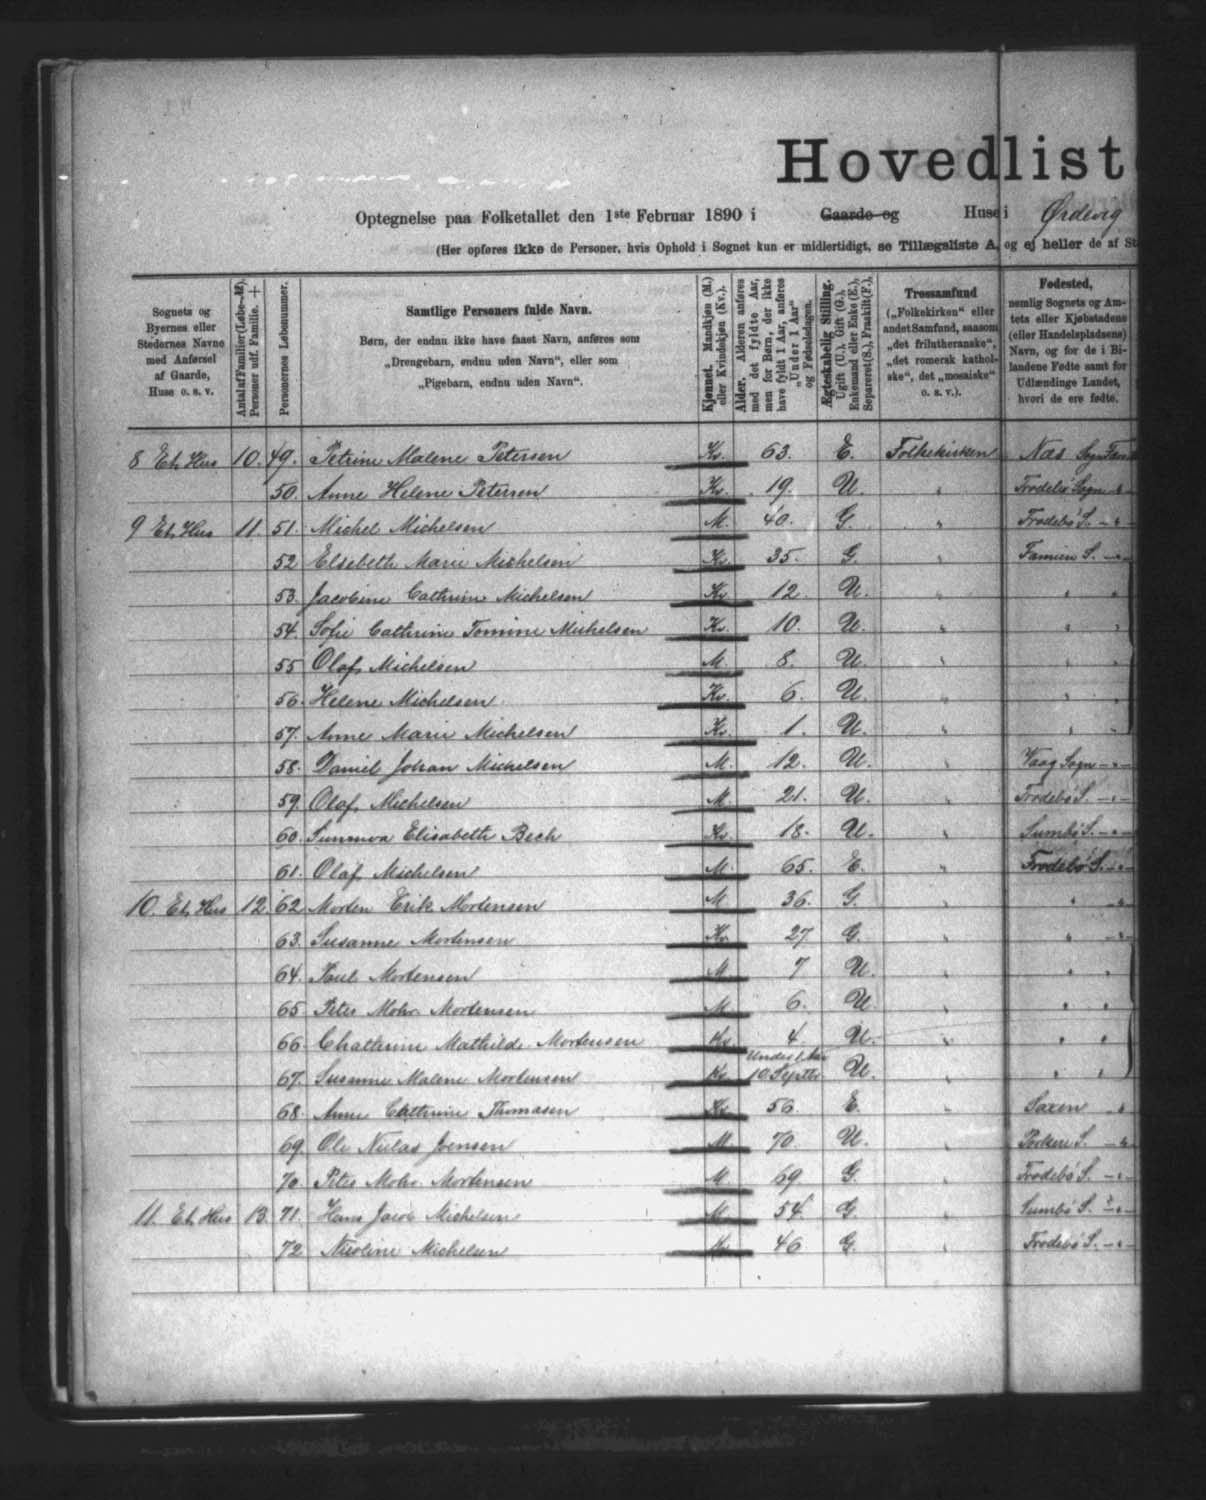 Hovedliste
Optegnelse paa Folketallet den 1ste Februar 1890 i Gaarde og Huse i Ørdevig
(Her opføres ikke de Personer, hvis Ophold i Sognet kun er midlertidigt, se Tillægsliste A, og ej heller de af St
Sognets og Byernes eller Stedernes Navne med Anførsel af Gaarde, Huse o. s. v.
Antal af Familier (Løbe-№). Personer udf. Familie. +
Personernes Løbenummer.
Samtlige Personers fulde Navn.
Børn, der endnu ikke have faaet Navn, anføres som „Drengebarn, endnu uden Navn“, eller som „Pigebarn, endnu uden Navn“.
Kjønnet. Mandkjøn (M.) eller Kvindekjøn (Kv.).
Alder. Alderen anføres med det fyldte Aar, men for Børn, der ikke have fyldt 1 Aar, anføres „Under 1 Aar“ og Fødselsdagen.
Ægteskabelig Stilling. Ugift (U.), Gift (G.), Enkemand eller Enke (E.), Separeret (S.), Fraskilt (F.).
Trossamfund („Folkekirken“ eller andet Samfund, saasom „det frilutheranske“, „det romersk katholske“, det „mosaiske“ o. s. v.).
Fødested, nemlig Sognets og Amtets eller Kjøbstadens (eller Handelspladsens) Navn, og for de i Bilandene Fødte samt for Udlændinge Landet, hvori de ere fødte.
8 Et Hus 10. 49. Petrine Malene Petersen Kv. 63. E. Folkekirken Næs Sogn
50. Anne Helene Petersen Kv. 19. U. " Frodebø Sogn - " -
9 Et Hus 11. 51. Michel Michelsen M. 40. G. " Frodebø S. - " -
52 Elsebeth Marie Michelsen Kv. 35. G. " Famien S. - " -
53. Jacobine Cathrine Michelsen Kv. 12 U. " " "
54. Sofie Cathrine Tomine Michelsen Kv. 10. U. " " "
55 Olaf Michelsen M. 8. U. "
56. Helene Michelsen Kv. 6. U. " " "
57. Anne Marie Michelsen Kv. 1. U. " " "
58. Daniel Johan Michelsen M. 12. U. " Vaag Sogn - " -
59. Olaf Michelsen M. 21. U. " Frodebø S. - " -
60. Sunnva Elisabeth Bech Kv. 18. U. " Sumbø S. - " -
61. Olaf Michelsen M. 65. E. " Frodebø S. - " -
10. Et Hus 12. 62 Morten Erik Mortensen M. 36. G. " " - " -
63. Susanne Mortensen Kv. 27 G. " " - " -
64. Paul Mortensen M. 7 U. " " "
65 Peter Mohr Mortensen M. 6. U. " " "
66. Chathrine Mathilde Mortensen Kv. 4. U. " " "
67. Susanne Malene Mortensen Kv. Under 1 Aar 10 Septbr U. " " "
68. Anne Cathrine Thomasen Kv. 56. E. " Saxen - " -
69. Ole Niclas Joensen M. 70. U. " Porkere S. - " -
70. Peter Mohr Mortensen M. 69 G. " Frodebø S. - " -
11. Et Hus 13. 71. Hans Jacob Michelsen M. 54. G. " Sumbø S. - " -
72 Nicoline Michelsen Kv. 46 G. " Frodebø S. - " -